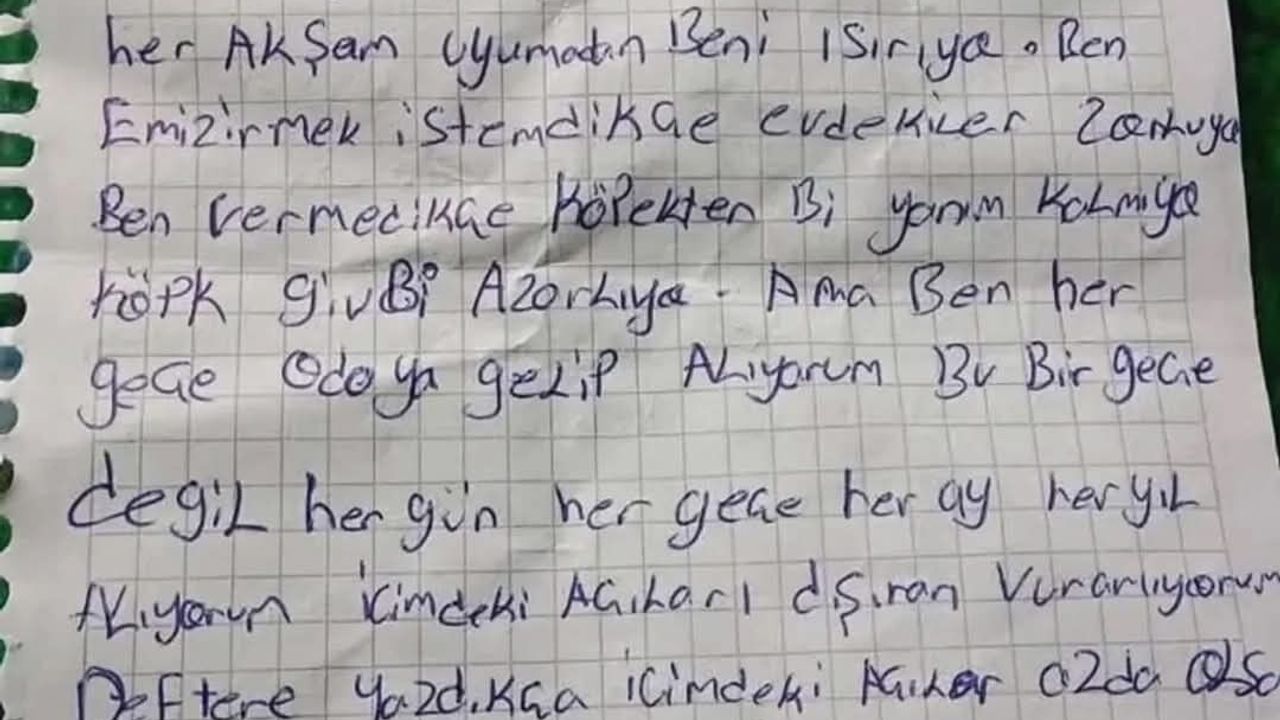 her AkŞam uyumadan Beni ısırıya. Ben
Emizirmek istemdikçe evdekiler Zorluya
Ben vermedikçe köpekten Bi yanım kalmıya
köpk givBi Azarlıya. Ama Ben her
gece Odaya gelip ALıyorum Bu Bir gece
degil her gün her gece her ay her yıL
ALıyorum içimdeki Acıları dışıran Vurarlıyorum
Deftere yazdıkça içimdeki Acılar azda Olsa